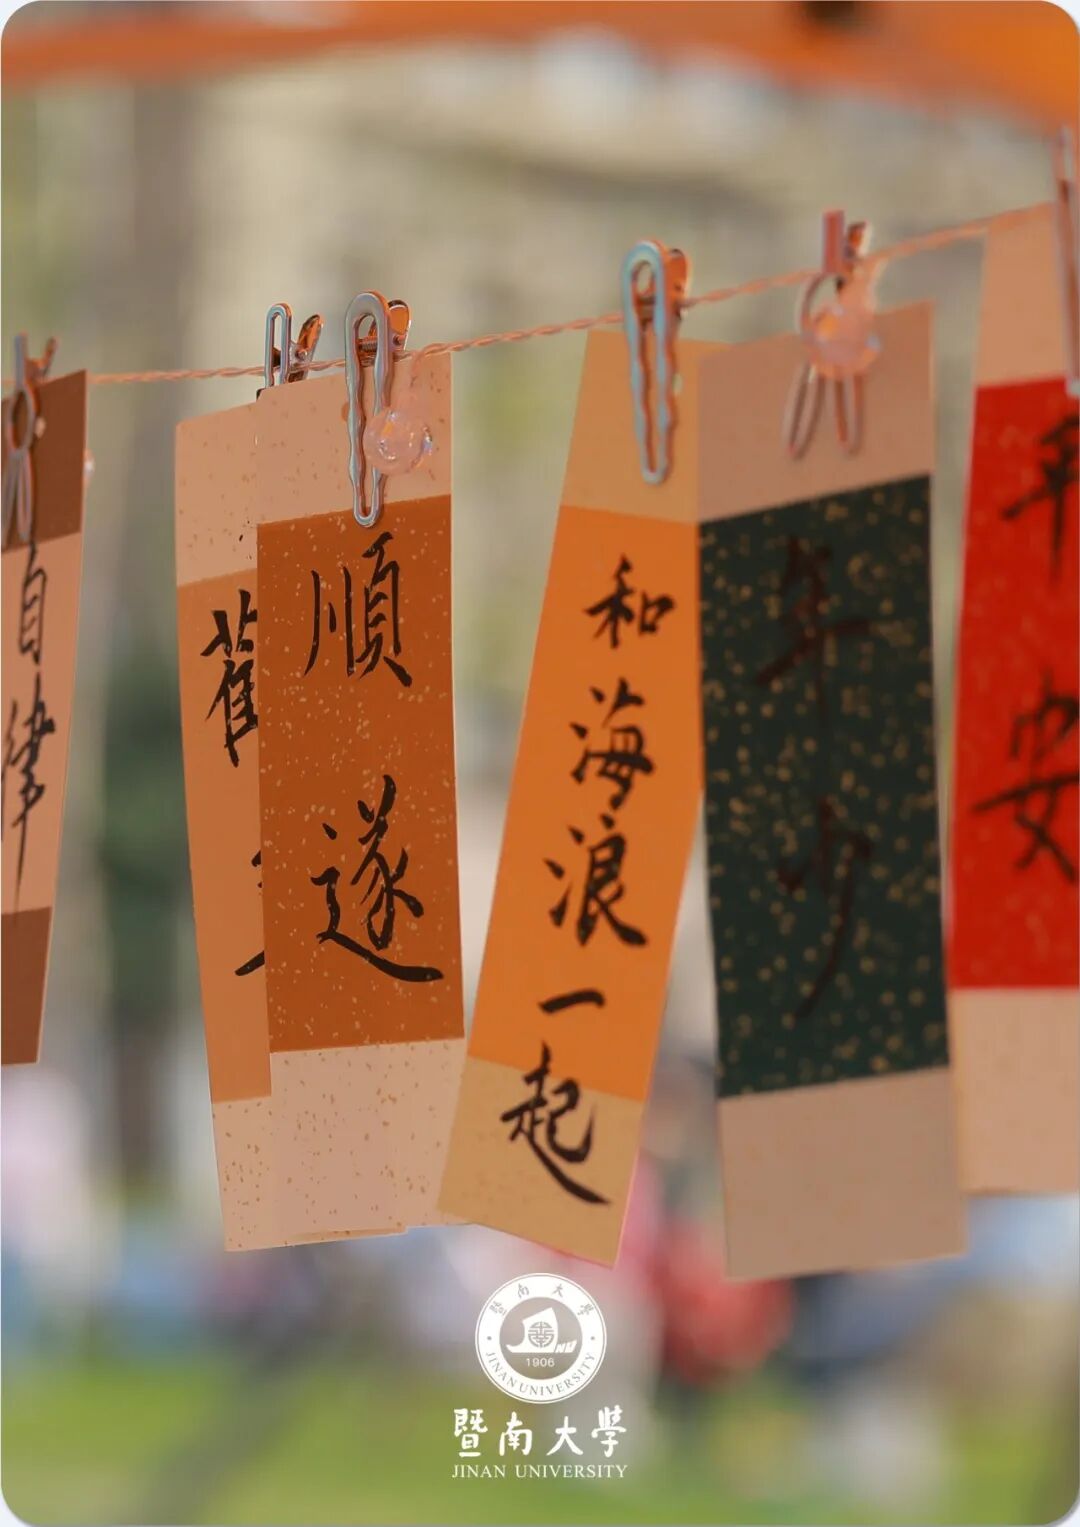 自律
舊
順遂
和海浪一起
年少
平安
暨南大學
JINAN UNIVERSITY
1906
暨南大學
JINAN UNIVERSITY